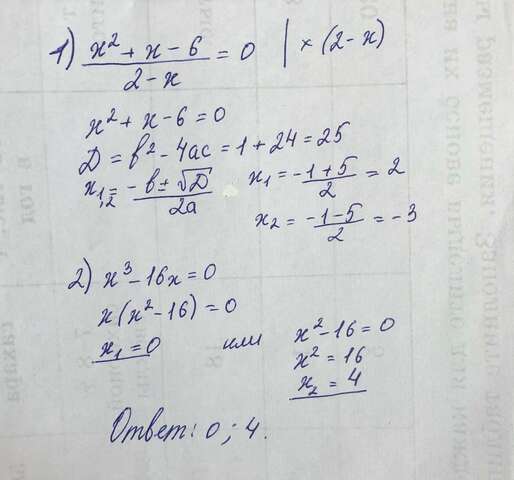 1) (x² + x − 6)/(2 − x) = 0 | × (2 − x)
x² + x − 6 = 0
D = b² − 4ac = 1 + 24 = 25
x₁,₂ = (−b ± √D)/(2a) x₁ = (−1 + 5)/2 = 2
x₂ = (−1 − 5)/2 = −3
2) x³ − 16x = 0
x(x² − 16) = 0
x₁ = 0 или x² − 16 = 0
x² = 16
x₂ = 4
Ответ: 0; 4.